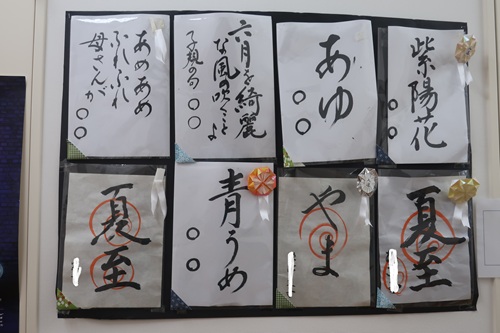 紫陽花
○○
あゆ
○○
六月を綺麗
な風の吹くことよ
子規の句 ○○
あめあめ
ふれふれ
母さんが
○○
夏至
やま
青うめ
○○
夏至